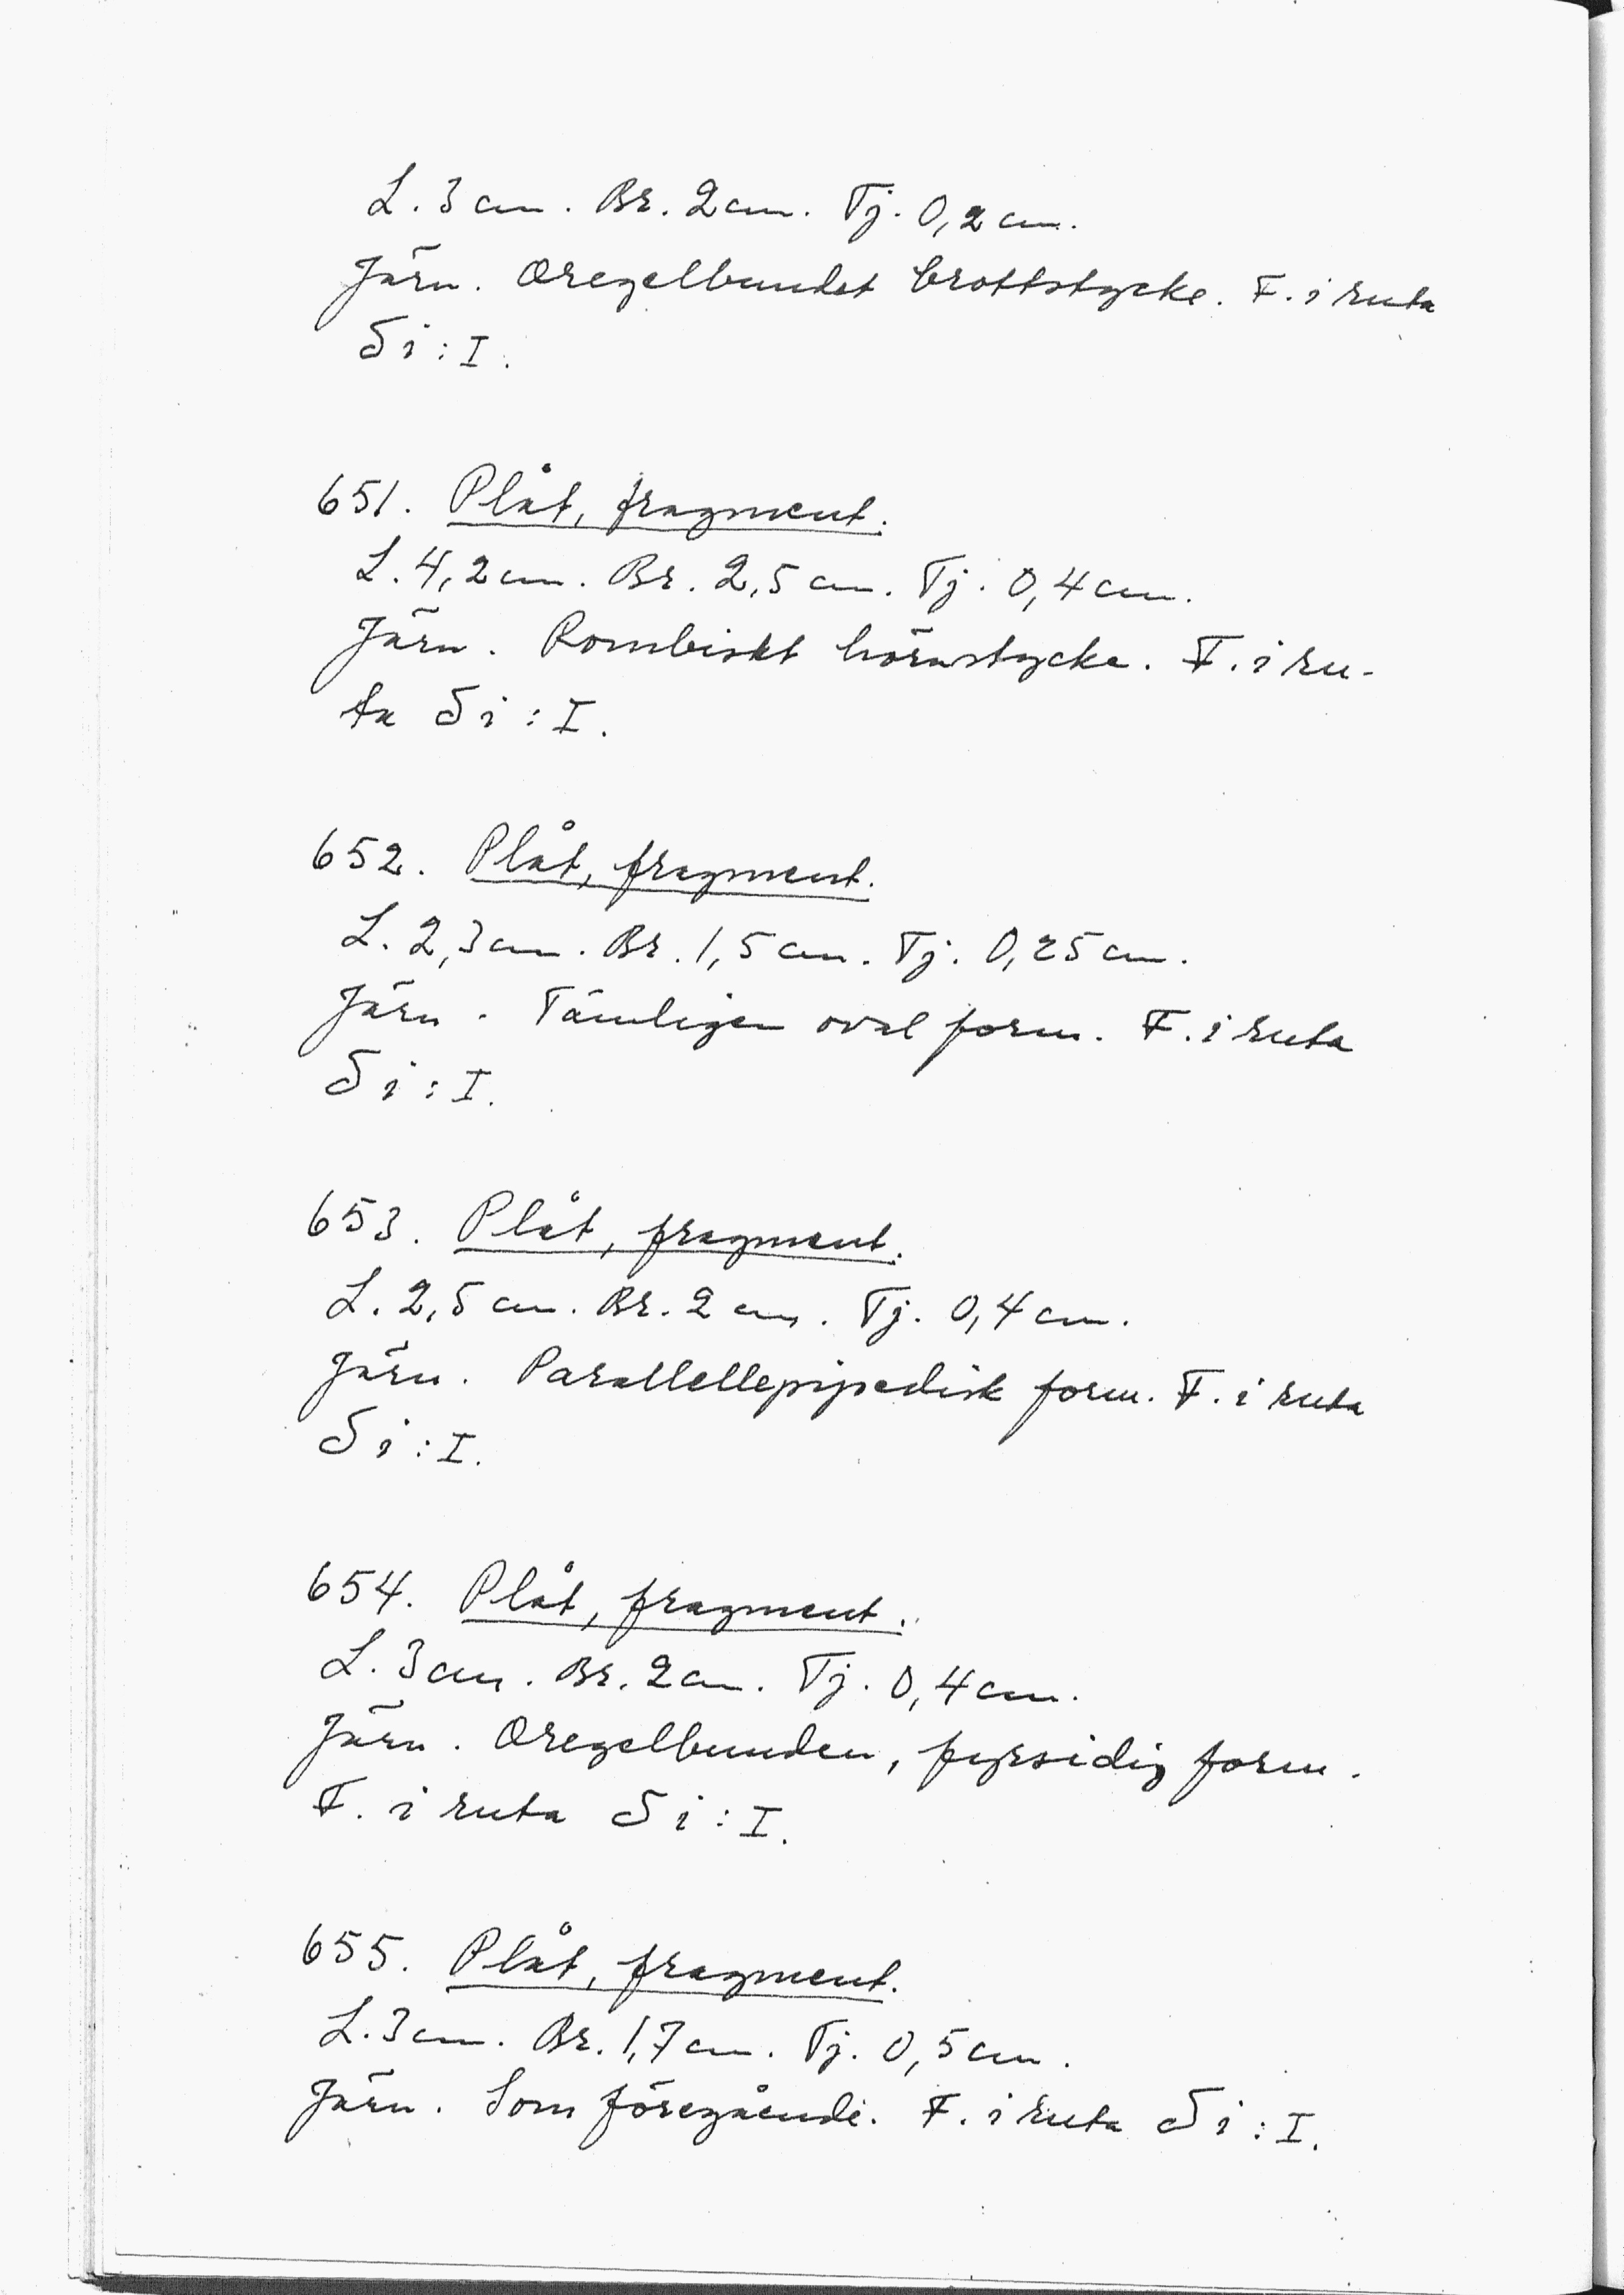 L. 3 cm. Br. 2 cm. Tj. 0,2 cm.
Järn. Oregelbundet brottstycke. F. i ruta
Si : I.
651. Plåt, fragment.
L. 4,2 cm. Br. 2,5 cm. Tj. 0,4 cm.
Järn. Rombiskt hörnstycke. F. i ru-
ta Si : I.
652. Plåt, fragment.
L. 2,3 cm. Br. 1,5 cm. Tj. 0,25 cm.
Järn. Tämligen oval form. F. i ruta
Si : I.
653. Plåt, fragment.
L. 2,5 cm. Br. 2 cm. Tj. 0,4 cm.
Järn. Parallellepipedisk form. F. i ruta
Si : I.
654. Plåt, fragment.
L. 3 cm. Br. 2 cm. Tj. 0,4 cm.
Järn. Oregelbunden, fyrsidig form.
F. i ruta Si : I.
655. Plåt, fragment.
L. 3 cm. Br. 1,7 cm. Tj. 0,5 cm.
Järn. Som föregående. F. i ruta Si : I.